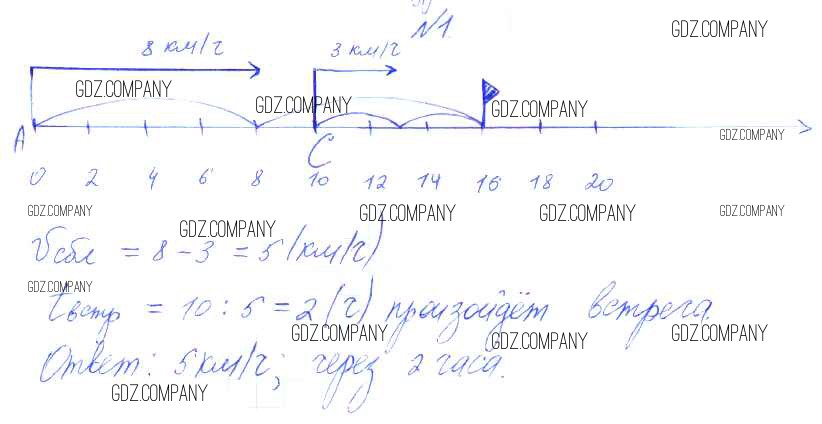 N1.
GDZ.COMPANY
8 км/ч 3 км/ч
GDZ.COMPANY GDZ.COMPANY GDZ.COMPANY
GDZ.COMPANY
A C
0 2 4 6 8 10 12 14 16 18 20
GDZ.COMPANY GDZ.COMPANY GDZ.COMPANY GDZ.COMPANY GDZ.COMPANY
Vсбл = 8 - 3 = 5 (км/ч)
GDZ.COMPANY
tвстр = 10 : 5 = 2 (ч) произойдёт встреча.
GDZ.COMPANY GDZ.COMPANY GDZ.COMPANY
Ответ: 5 км/ч; через 2 часа.
GDZ.COMPANY